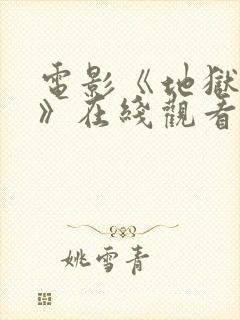 電影《地獄
》在綫觀看
姚雪青